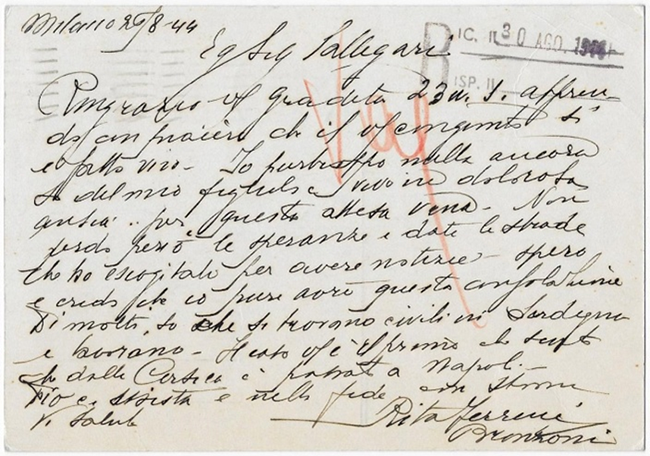 Milano 29/8-44
Eg Sig Pallegari.
B IC. IL 30 AGO. 194
ISP. IL
Ringrazio vs gradita 23 u. s. appren
do con piacere che il vs congiunto si
è fatto vivo - Io purtroppo nulla ancora
so del mio figliolo e vivo in dolorosa
ansia .. per questa attesa vana - Non
perdo però le speranze e date le strade
che ho escogitate per avere notizie - spero
e credo che io pure avrò questa consolazione
Di molti, so che si trovano civili in Sardegna
e lavorano - Il caso vs è il primo che sento
che dalla Corsica è portato a Napoli. -
Dio ci assista e nella fede con stima
Vi saluto
Rita Ferreri
Bronzoni